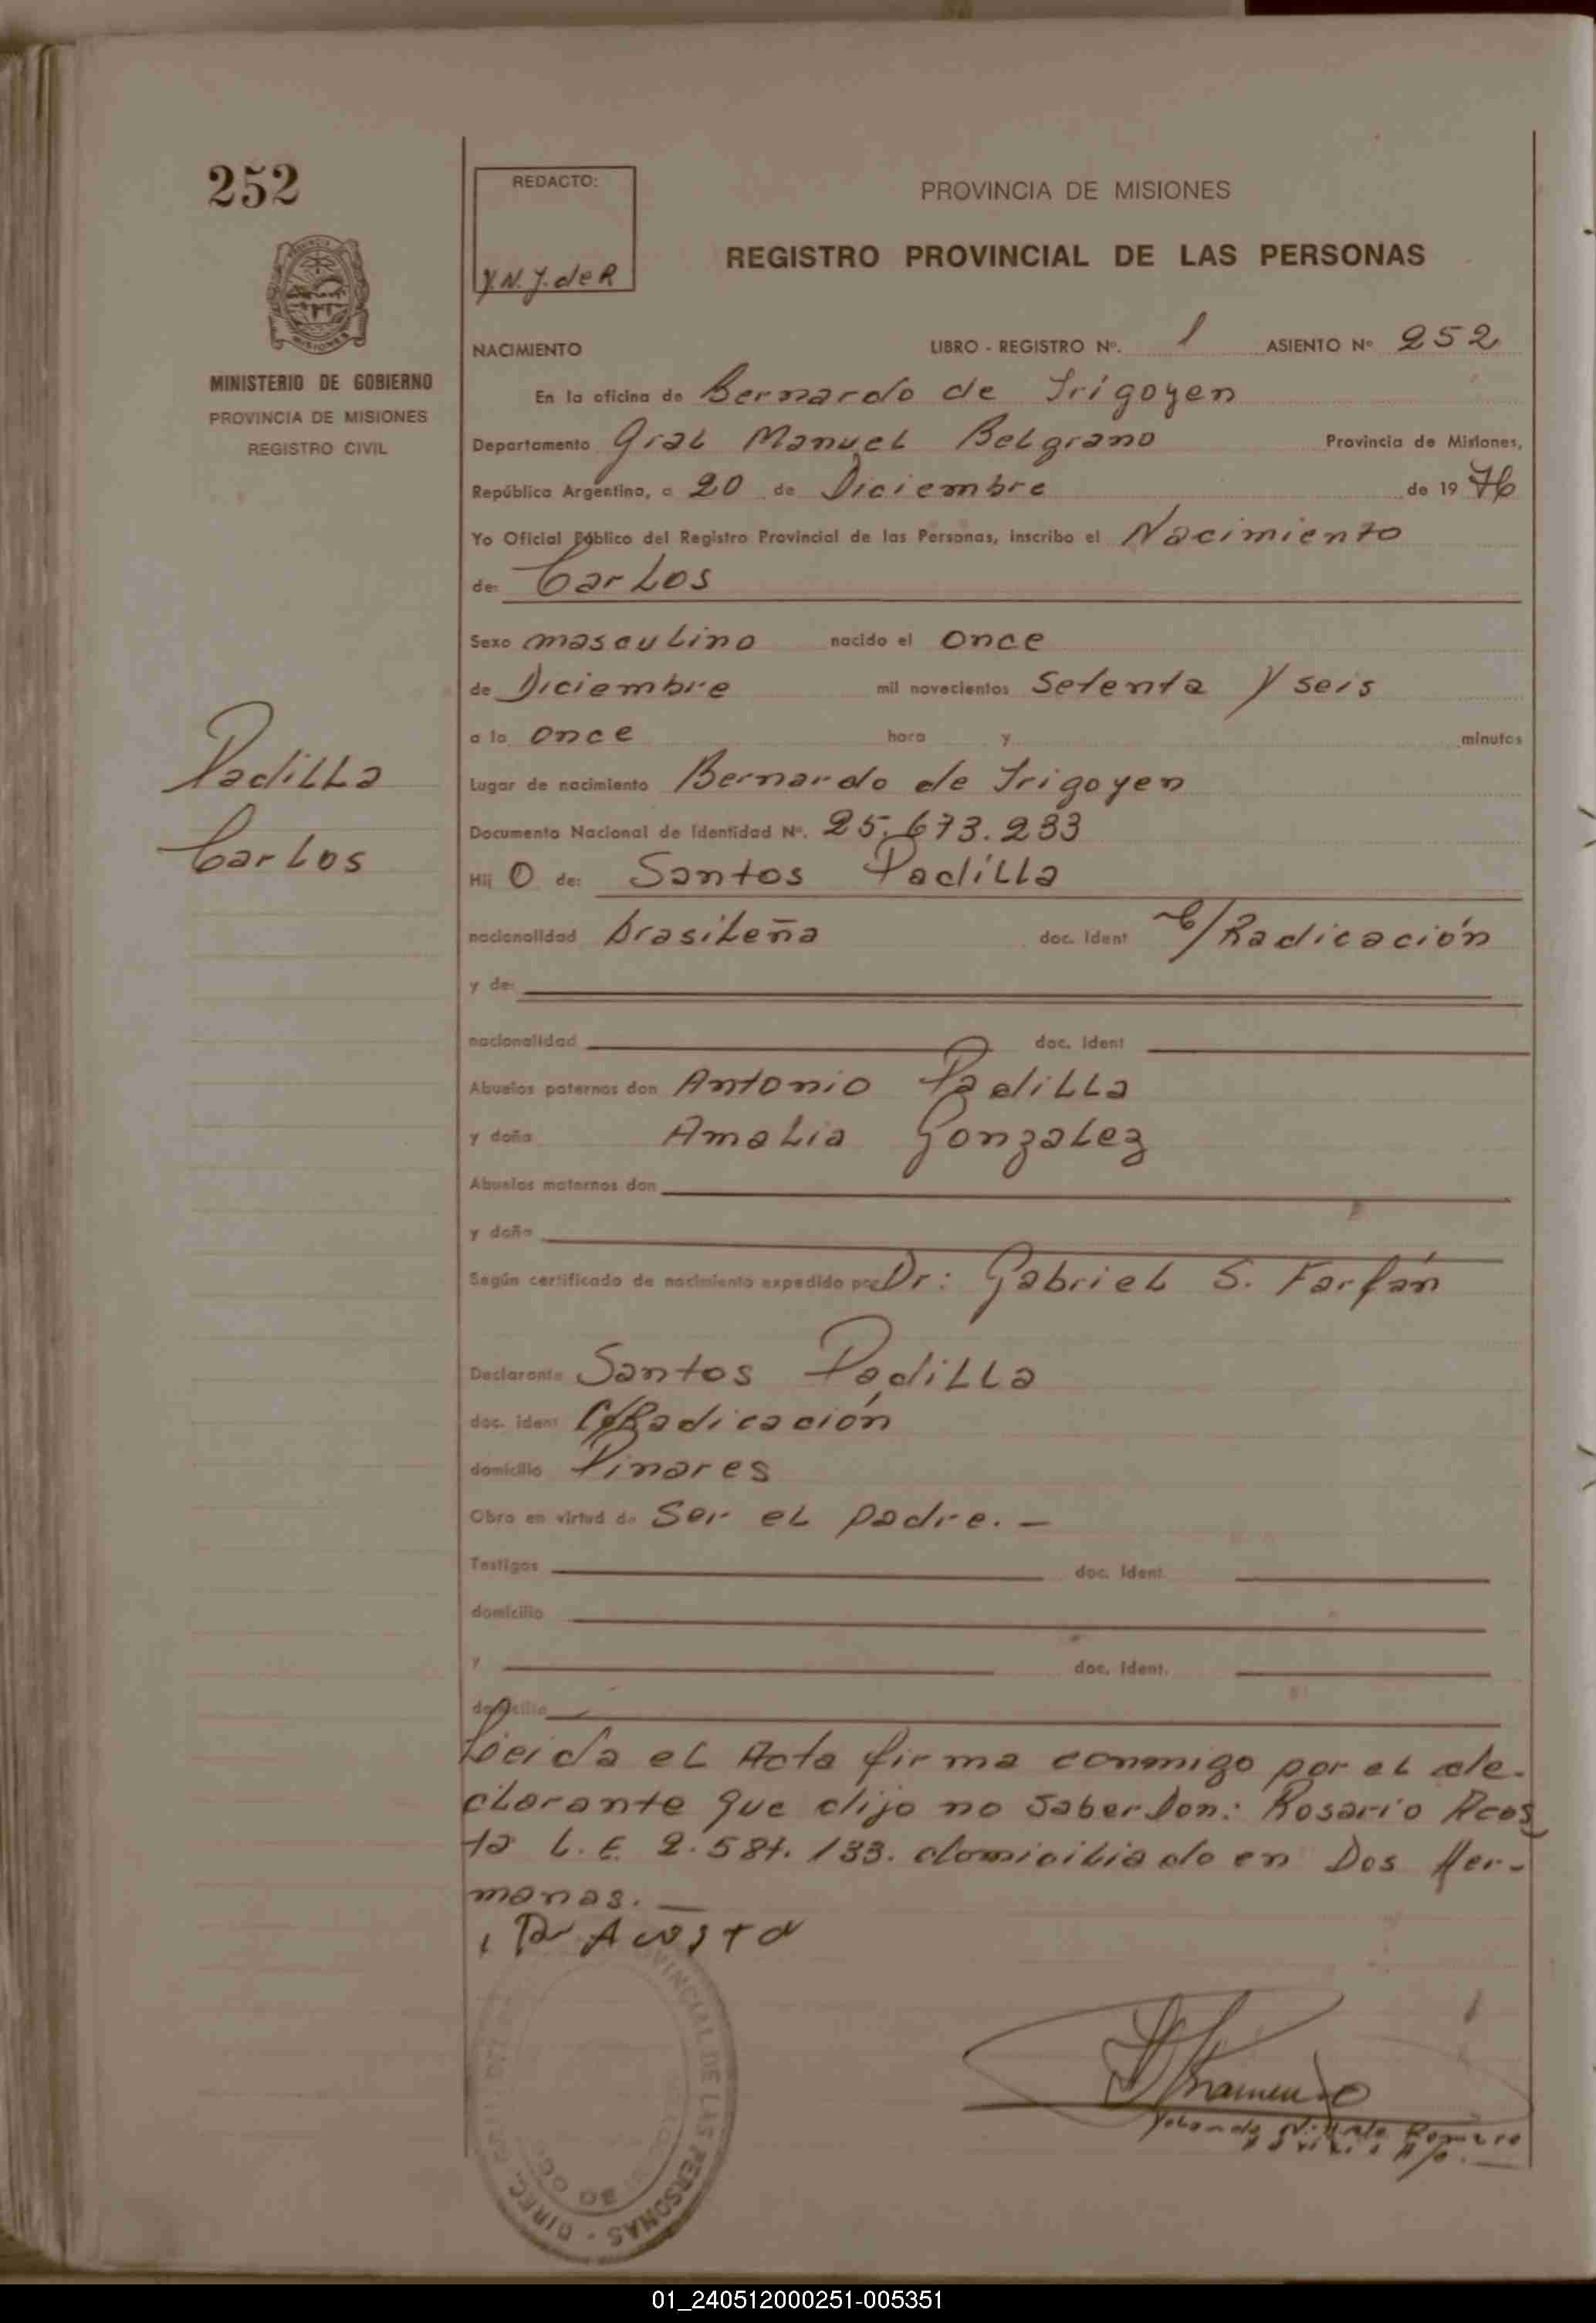 252
MINISTERIO DE GOBIERNO
PROVINCIA DE MISIONES
REGISTRO CIVIL
Padilla
Carlos
REDACTO:
Y.N.J. de R
PROVINCIA DE MISIONES
REGISTRO PROVINCIAL DE LAS PERSONAS
NACIMIENTO LIBRO - REGISTRO Nº. 1 ASIENTO Nº 252
En la oficina de Bernardo de Irigoyen
Departamento Gral Manuel Belgrano Provincia de Misiones,
República Argentina, a 20 de Diciembre de 19 76
Yo Oficial Público del Registro Provincial de las Personas, inscribo el Nacimiento
de: Carlos
Sexo masculino nacido el once
de Diciembre mil novecientos Setenta y seis
a la once hora y minutos
Lugar de nacimiento Bernardo de Irigoyen
Documento Nacional de Identidad Nº. 25.673.233
Hij o de: Santos Padilla
nacionalidad brasileña doc. ident C/Radicación
y de:
nacionalidad doc. ident
Abuelos paternos don Antonio Padilla
y doña Amalia Gonzalez
Abuelos maternos don
y doña
Según certificado de nacimiento expedido por Dr: Gabriel S. Farfán
Declarante Santos Padilla
doc. ident C/Radicación
domicilio Pinares
Obra en virtud de Ser el padre. —
Testigos doc. ident.
domicilio
y doc. ident.
domicilio
Leida el Acta firma conmigo por el de-
clarante que dijo no saber Don: Rosario Acos
ta L.E. 2.584.133. domiciliado en Dos Her-
manas. —
Acosta
DIREC. PROVINCIAL DE LAS PERSONAS
Romero
01_240512000251-005351